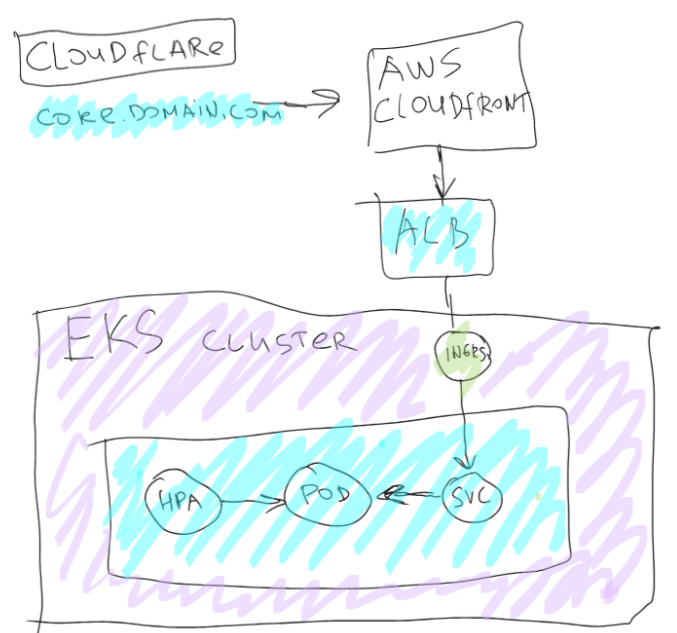 CLOUDfLARe
CORE.DOMAIN.COM
AWS
CLOUDfRONT
ALB
EKS CLUSTER
INGRS
HPA
POD
SVC